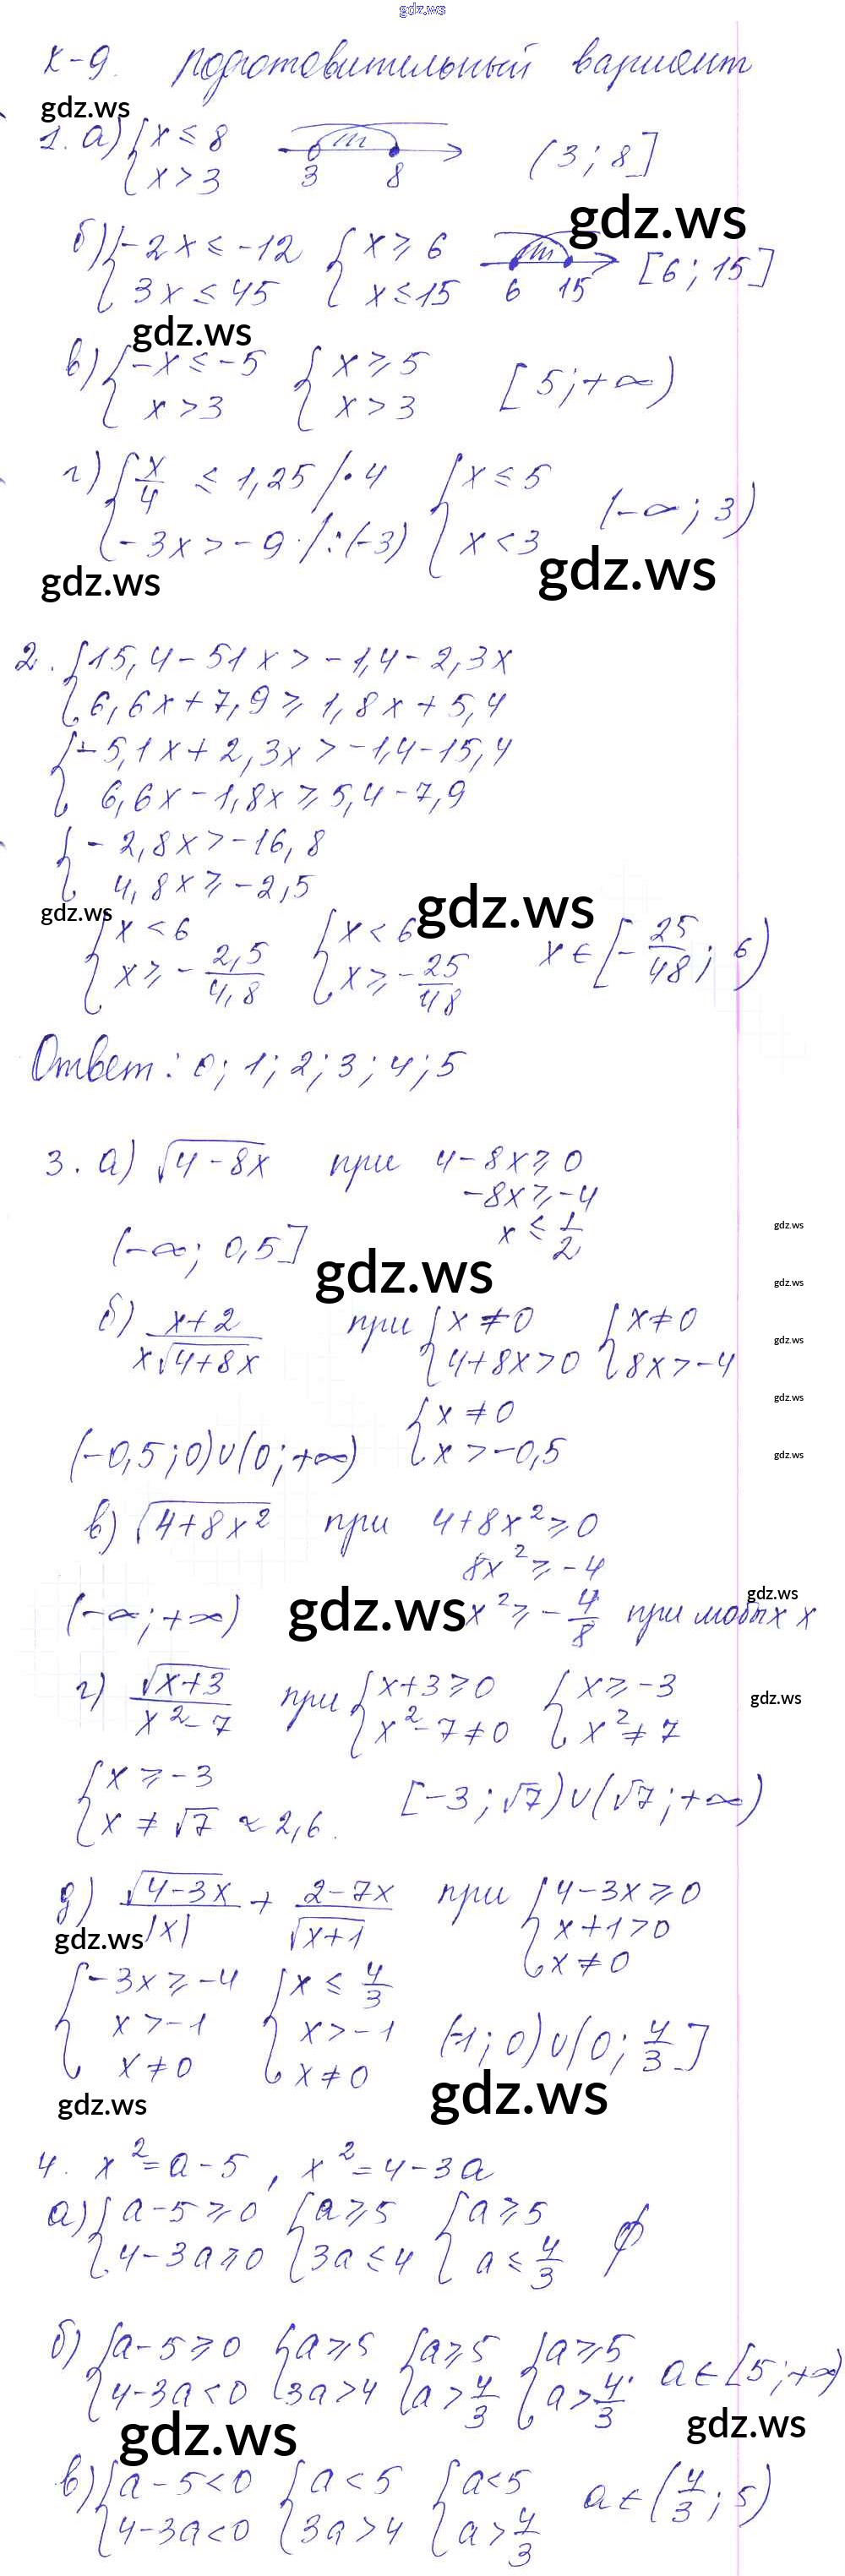 gdz.ws
К-9. подготовительный вариант
gdz.ws
1. а) { x ≤ 8
x > 3
3 8
(3; 8]
gdz.ws
б) { -2x ≤ -12
3x ≤ 45
{ x ≥ 6
x ≤ 15
6 15
[6; 15]
gdz.ws
в) { -x ≤ -5
x > 3
{ x ≥ 5
x > 3
[5; +∞)
г) { x/4 ≤ 1,25 /·4
-3x > -9 /:(-3)
{ x ≤ 5
x < 3
(-∞; 3)
gdz.ws
gdz.ws
2. { 15,4 - 51x > -1,4 - 2,3x
6,6x + 7,9 ≥ 1,8x + 5,4
{ -5,1x + 2,3x > -1,4 - 15,4
6,6x - 1,8x ≥ 5,4 - 7,9
{ -2,8x > -16,8
4,8x ≥ -2,5
gdz.ws
gdz.ws
{ x < 6
x ≥ -2,5/4,8
{ x < 6
x ≥ -25/48
x ∈ [-25/48; 6)
Ответ: 0; 1; 2; 3; 4; 5
3. а) √(4-8x) при 4-8x ≥ 0
-8x ≥ -4
x ≤ 1/2
gdz.ws
(-∞; 0,5]
gdz.ws
gdz.ws
б) (x+2)/(x√(4+8x)) при { x ≠ 0
4+8x > 0
{ x ≠ 0
8x > -4
gdz.ws
gdz.ws
{ x ≠ 0
x > -0,5
(-0,5; 0)∪(0; +∞)
gdz.ws
в) √(4+8x²) при 4+8x² ≥ 0
8x² ≥ -4
gdz.ws
(-∞; +∞)
gdz.ws
x² ≥ -4/8 при любых x
г) √(x+3)/(x²-7) при { x+3 ≥ 0
x²-7 ≠ 0
{ x ≥ -3
x² ≠ 7
gdz.ws
{ x ≥ -3
x ≠ √7 ≈ 2,6.
[-3; √7)∪(√7; +∞)
д) √(4-3x)/|x| + (2-7x)/√(x+1) при { 4-3x ≥ 0
x+1 > 0
x ≠ 0
gdz.ws
{ -3x ≥ -4
x > -1
x ≠ 0
{ x ≤ 4/3
x > -1
x ≠ 0
(-1; 0)∪(0; 4/3]
gdz.ws
gdz.ws
4. x² = a-5, x² = 4-3a
а) { a-5 ≥ 0
4-3a ≥ 0
{ a ≥ 5
3a ≤ 4
{ a ≥ 5
a ≤ 4/3
∅
б) { a-5 ≥ 0
4-3a < 0
{ a ≥ 5
3a > 4
{ a ≥ 5
a > 4/3
{ a ≥ 5
a > 4/3.
a ∈ [5; +∞)
gdz.ws
gdz.ws
в) { a-5 < 0
4-3a < 0
{ a < 5
3a > 4
{ a < 5
a > 4/3
a ∈ (4/3; 5)